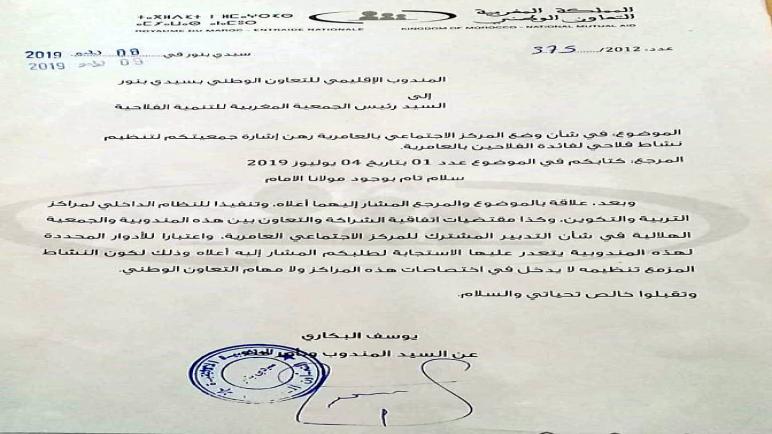 المملكة المغربية
التعاون الوطني
ROYAUME DU MAROC - ENTRAIDE NATIONALE
KINGDOM OF MOROCCO - NATIONAL MUTUAL AID
عدد: 2012/ 375
سيدي بنور في 09 2019
09 2019
المندوب الإقليمي للتعاون الوطني بسيدي بنور
إلى
السيد رئيس الجمعية المغربية للتنمية الفلاحية
الموضوع: في شأن وضع المركز الاجتماعي بالعامرية رهن إشارة جمعيتكم لتنظيم
نشاط فلاحي لفائدة الفلاحين بالعامرية.
المرجع: كتابكم في الموضوع عدد 01 بتاريخ 04 يوليوز 2019
سلام تام بوجود مولانا الامام
وبعد، علاقة بالموضوع والمرجع المشار إليهما أعلاه، وتنفيذا للنظام الداخلي لمراكز
التربية والتكوين، وكذا مقتضيات اتفاقية الشراكة والتعاون بين هذه المندوبية والجمعية
الهلالية في شأن التدبير المشترك للمركز الاجتماعي العامرية، واعتبارا للأدوار المحددة
لهذه المندوبية يتعدر عليها الاستجابة لطلبكم المشار إليه أعلاه وذلك لكون النشاط
المزمع تنظيمه لا يدخل في اختصاصات هذه المراكز ولا مهام التعاون الوطني.
وتقبلوا خالص تحياتي والسلام.
يوسف البكاري
عن السيد المندوب وبأمر